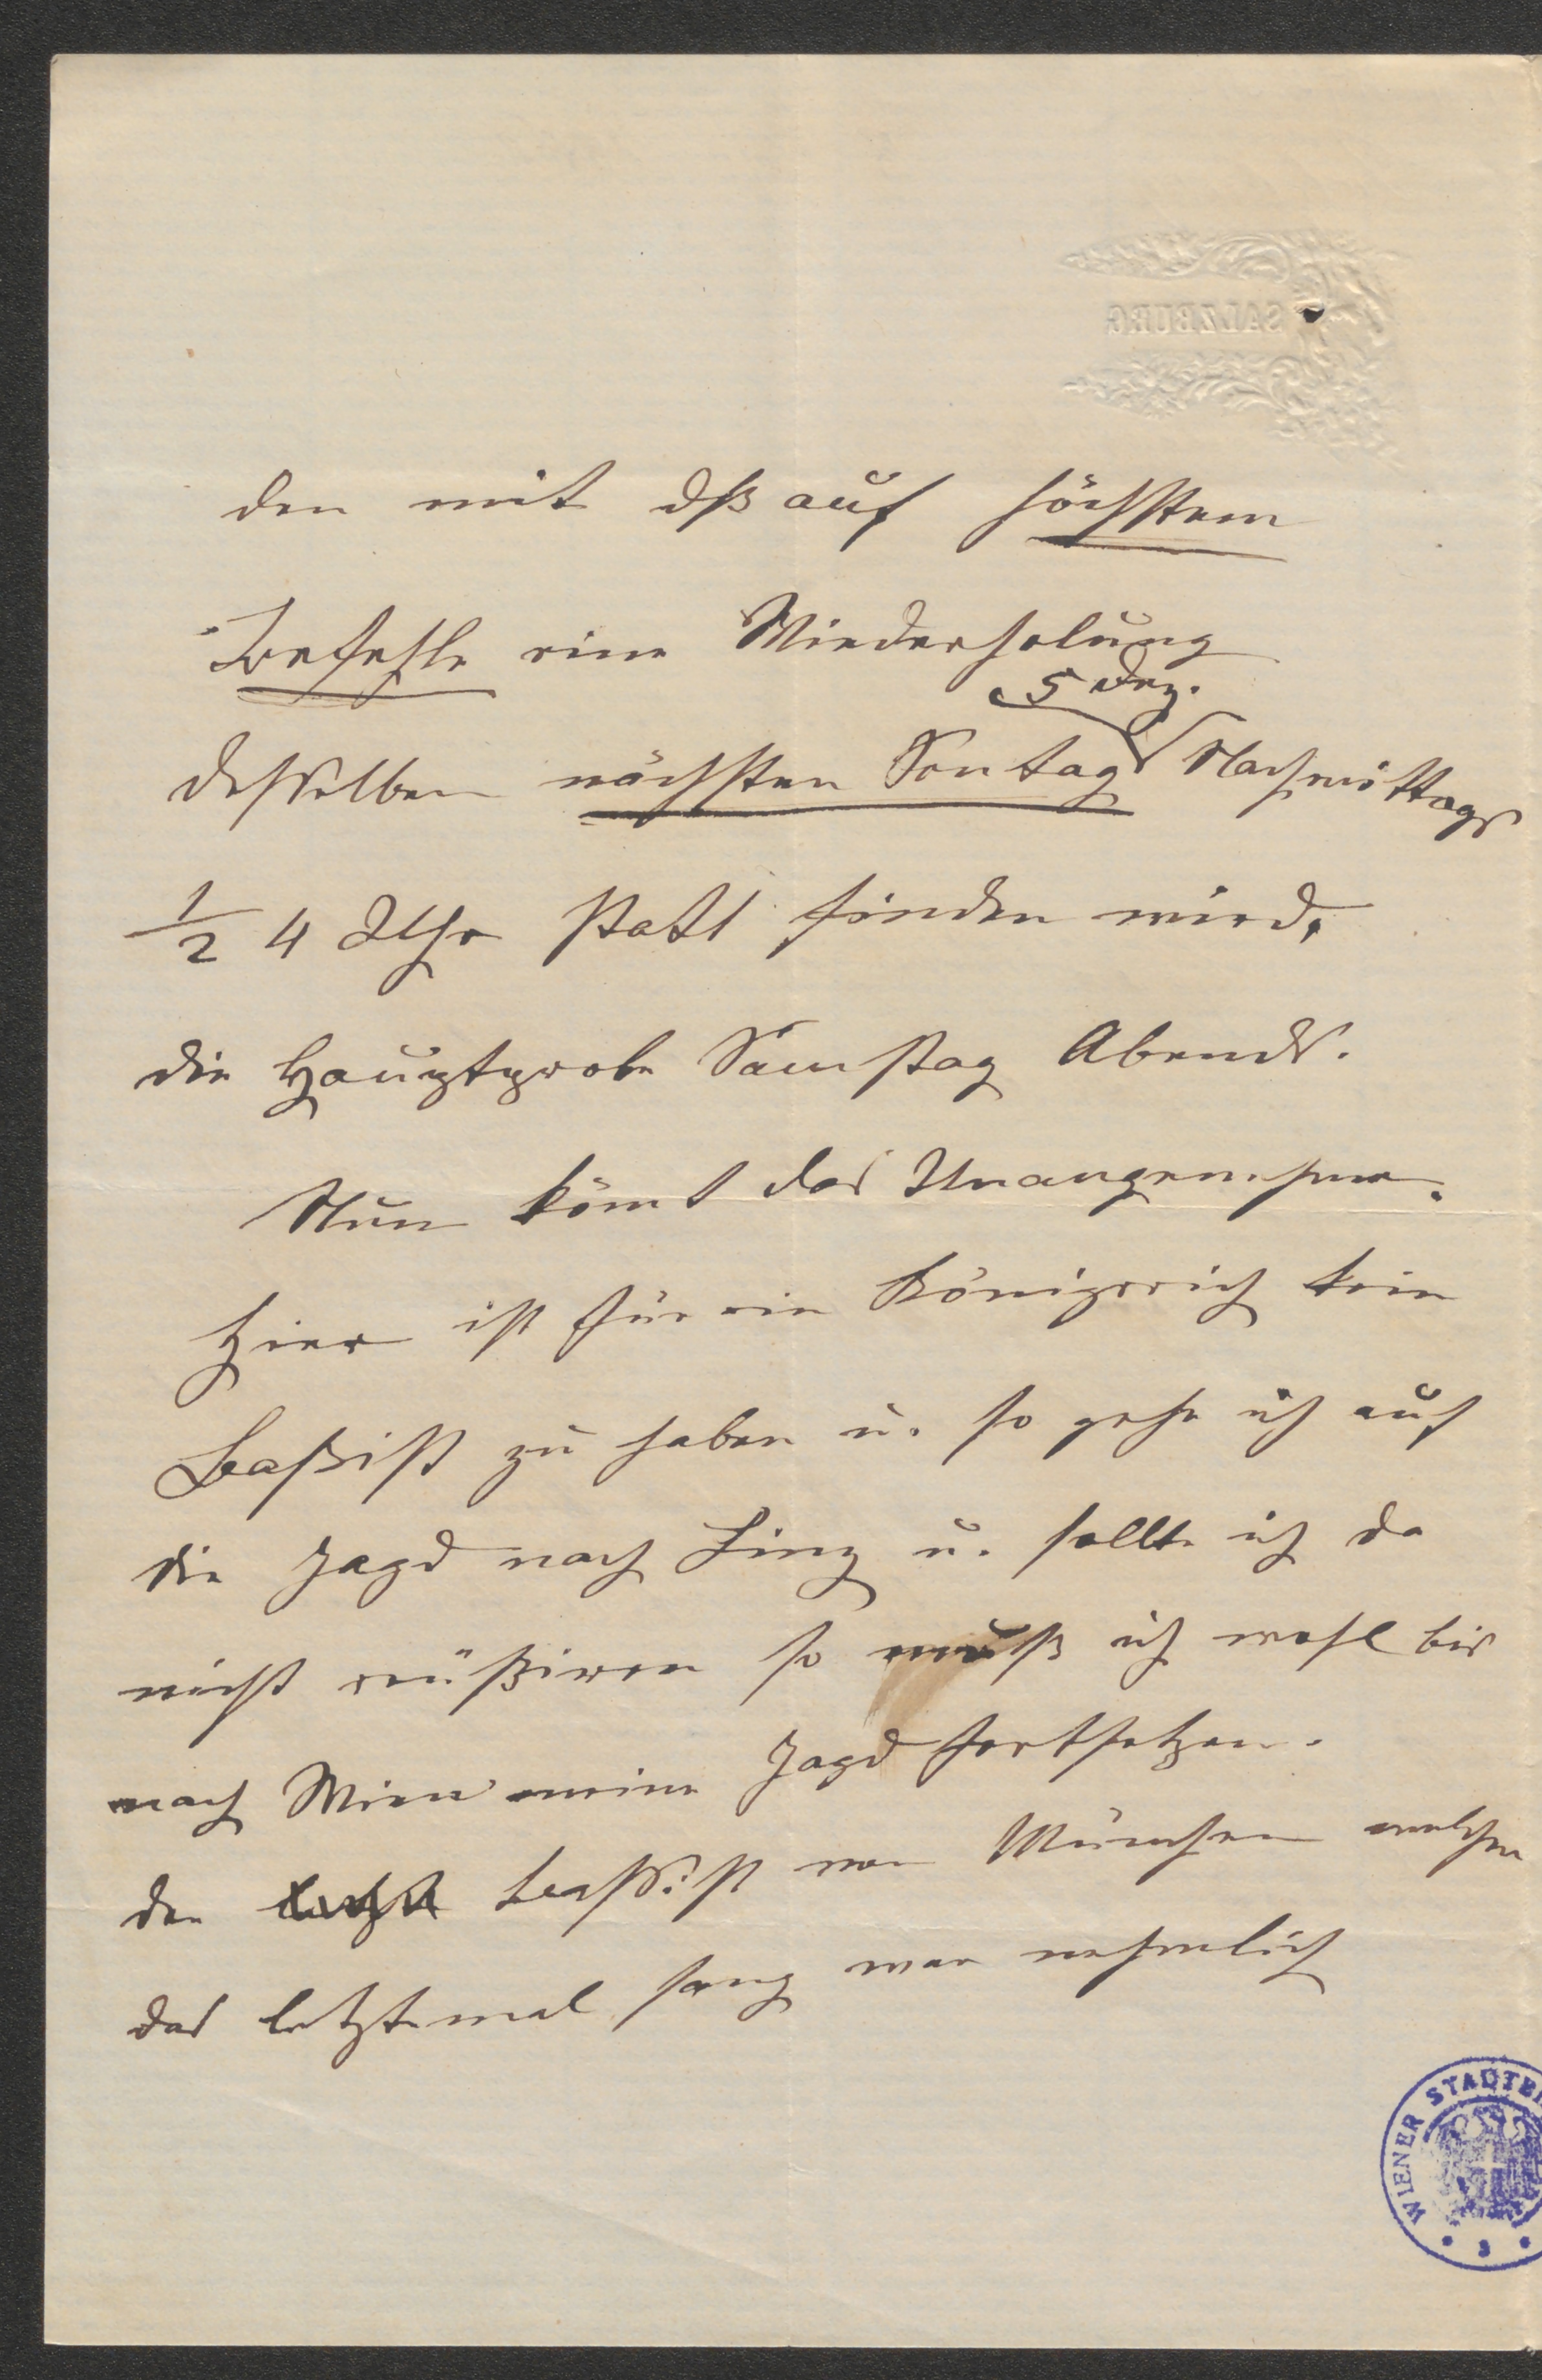 SALZBURG
den mit dß auf höchstem
Befehle eine Wiederholung
5 Dez.
desselben nächsten Sontag Nachmittags
1/2 4 Uhr statt finden wird,
die Hauptprobe Samstag Abends.
Nun kömt das Unangenehme.
Hier ist für ein Königreich kein
Baßist zu haben u. so gehe ich auf
die Jagd nach Linz u. sollte ich da
nicht reüßiren so muß ich wohl bis
nach Wien meine Jagd fortsetzen.
der Bassist von München welcher
das letztemal sang war nehmlich
WIENER STADTBI
3